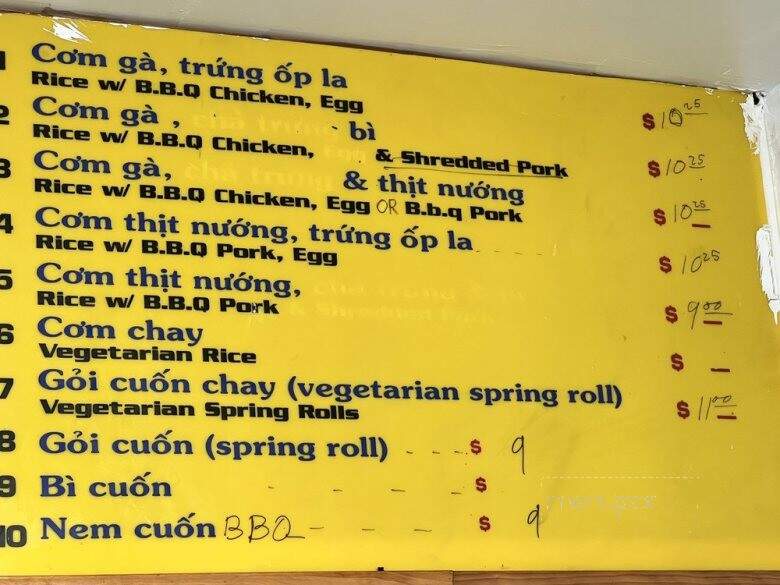 1 Cơm gà, trứng ốp la
Rice w/ B.B.Q Chicken, Egg $10 25
2 Cơm gà , bì
Rice w/ B.B.Q Chicken, & Shredded Pork $10 25
3 Cơm gà, & thịt nướng
Rice w/ B.B.Q Chicken, Egg OR B.b.q Pork $10 25
4 Cơm thịt nướng, trứng ốp la
Rice w/ B.B.Q Pork, Egg $10 25
5 Cơm thịt nướng,
Rice w/ B.B.Q Pork $9 00
6 Cơm chay
Vegetarian Rice $ –
7 Gỏi cuốn chay (vegetarian spring roll)
Vegetarian Spring Rolls $11 00
8 Gỏi cuốn (spring roll) - - - $ 9
9 Bì cuốn - - - - $
10 Nem cuốn BBQ - - - $ 9